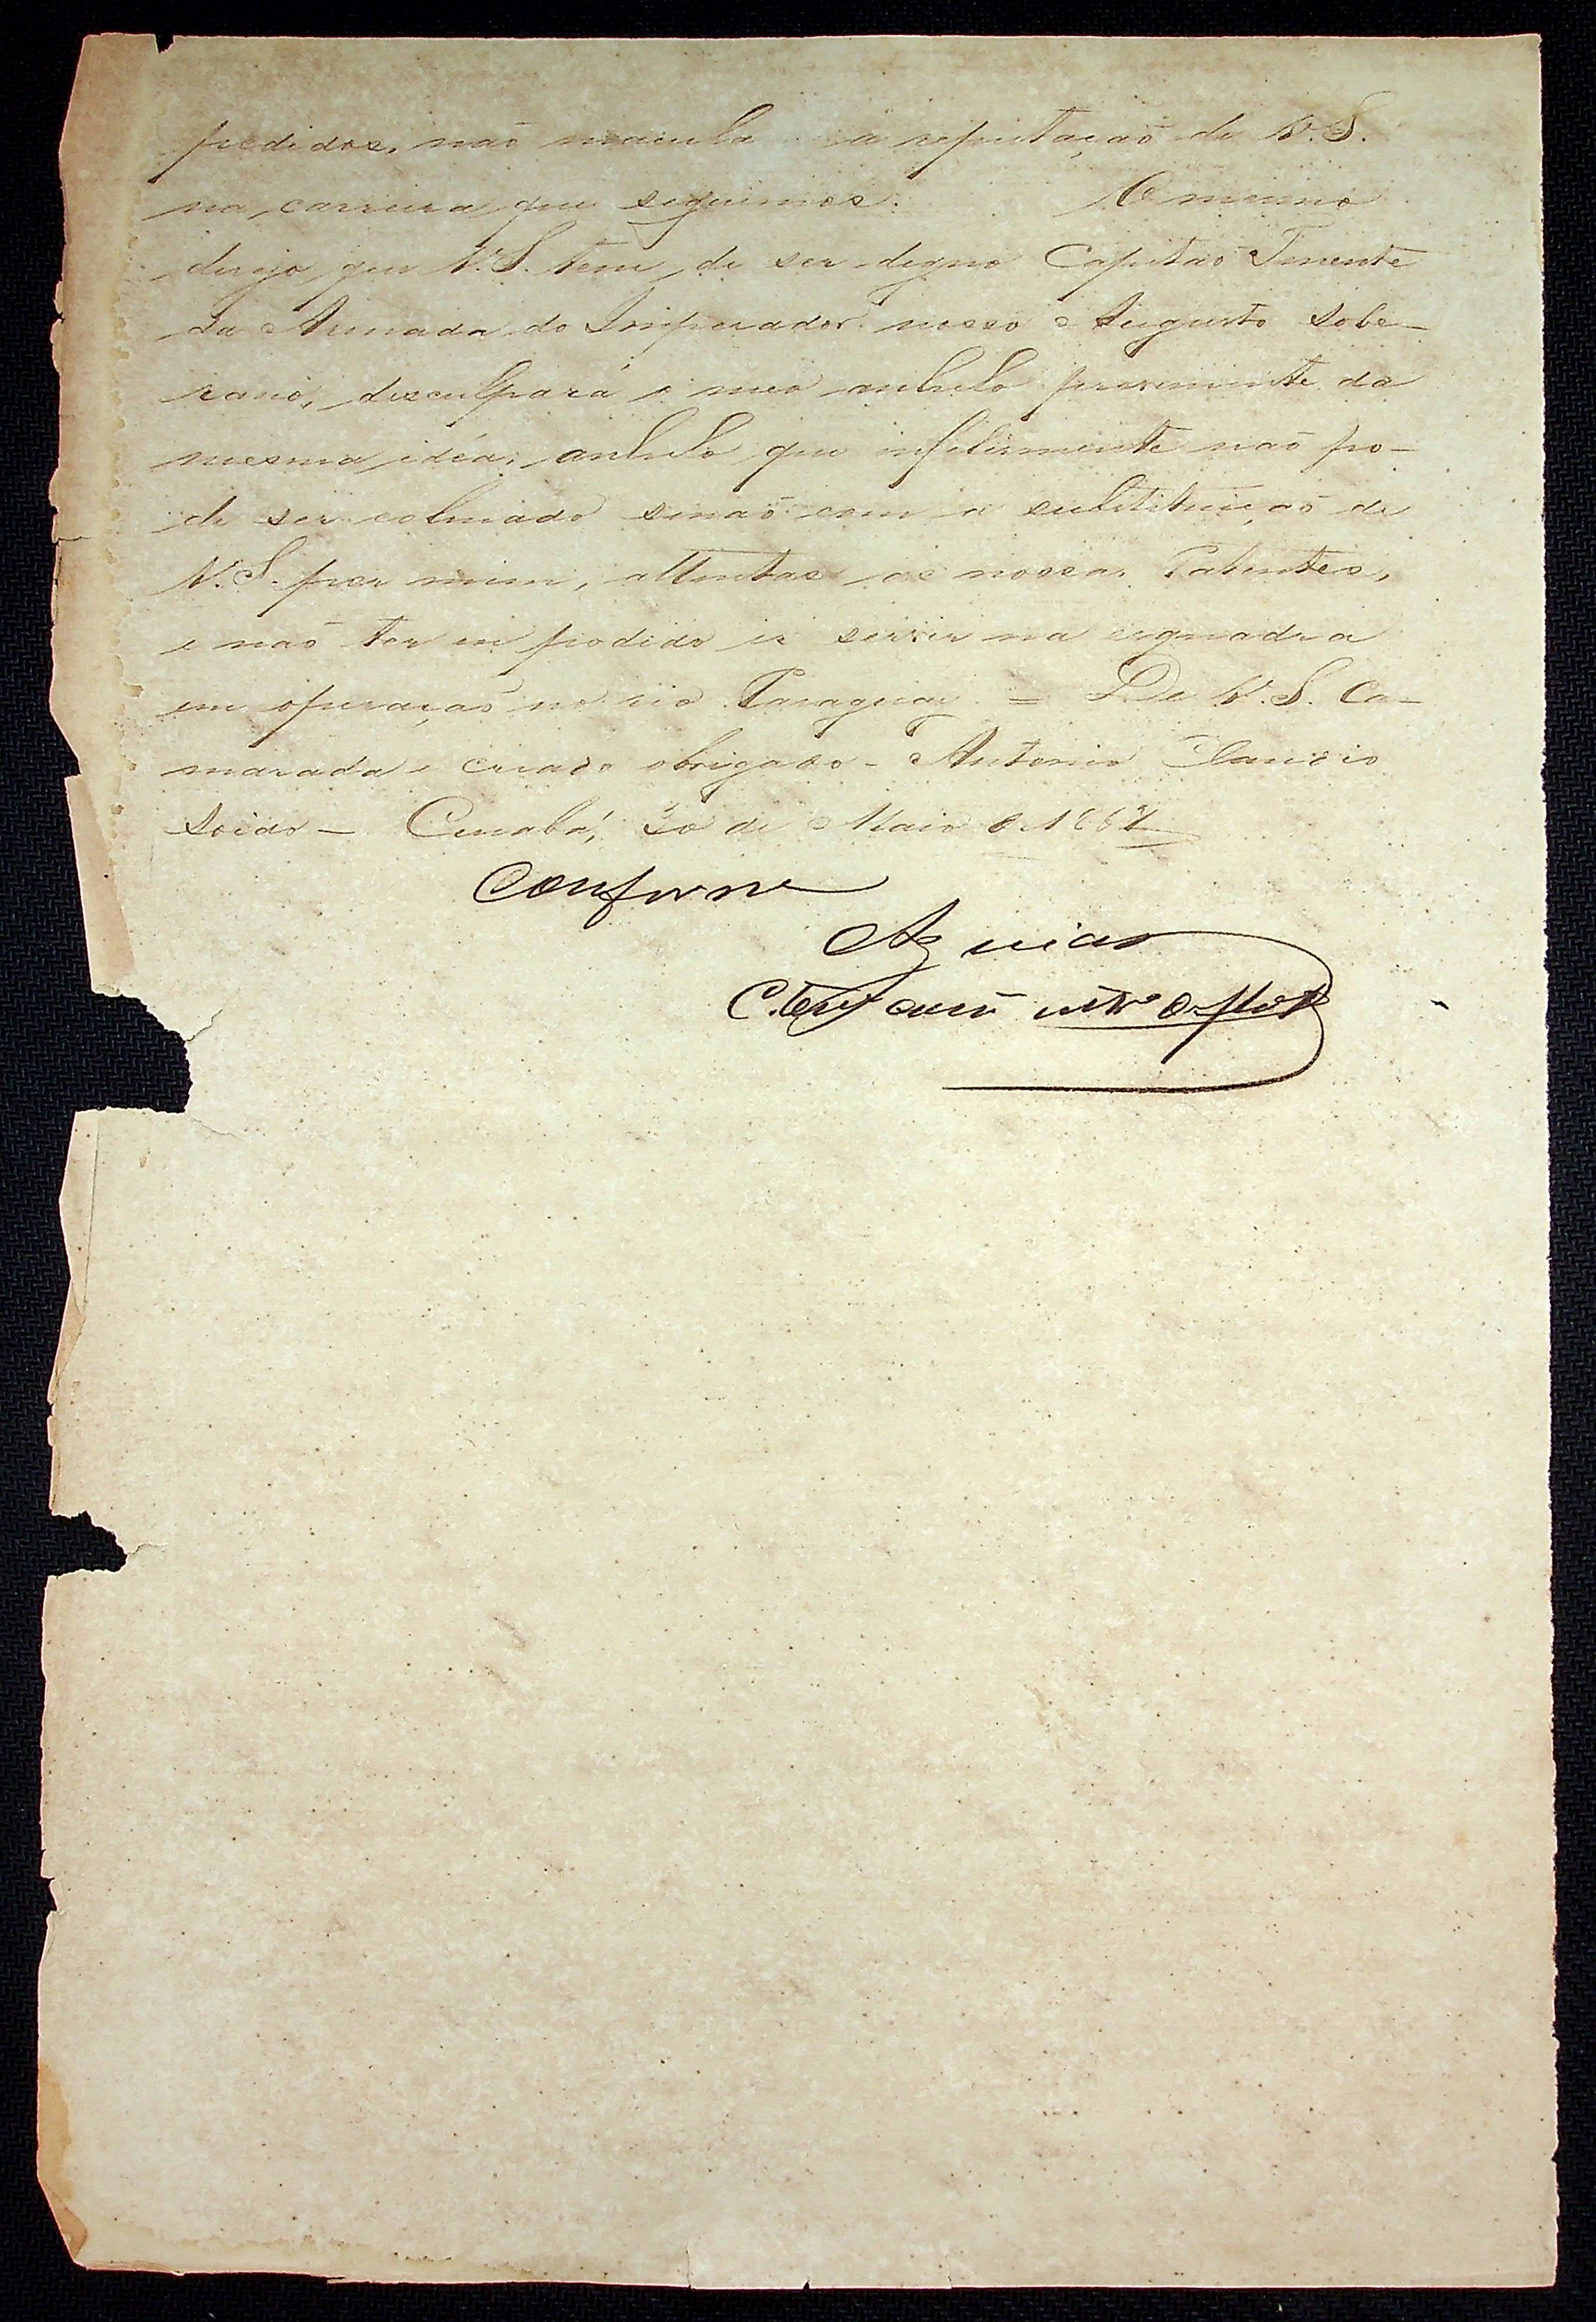 pedidos, não macula a reputação de V.S.
na carreira que seguimos. O mesmo
dezejo que V.S. tem de ser digno Capitão Tenente
da Armada do Imperador nosso Augusto Sobe-
rano, desculpará o meo anhelo proveniente da
mesma idéa; anhelo que infelismente não po-
de ser colmado sinão com a substituição de
V.S. por mim, attentas as nossas Patentes,
e não ter eu podido ir servir na esquadra
em operação no rio Paraguay = De V.S. Ca-
marada e criado obrigado - Antonio Claudio
Soido - Cuiabá, 30 de Maio de 1867
Conforme
Aguiar
C. Ten